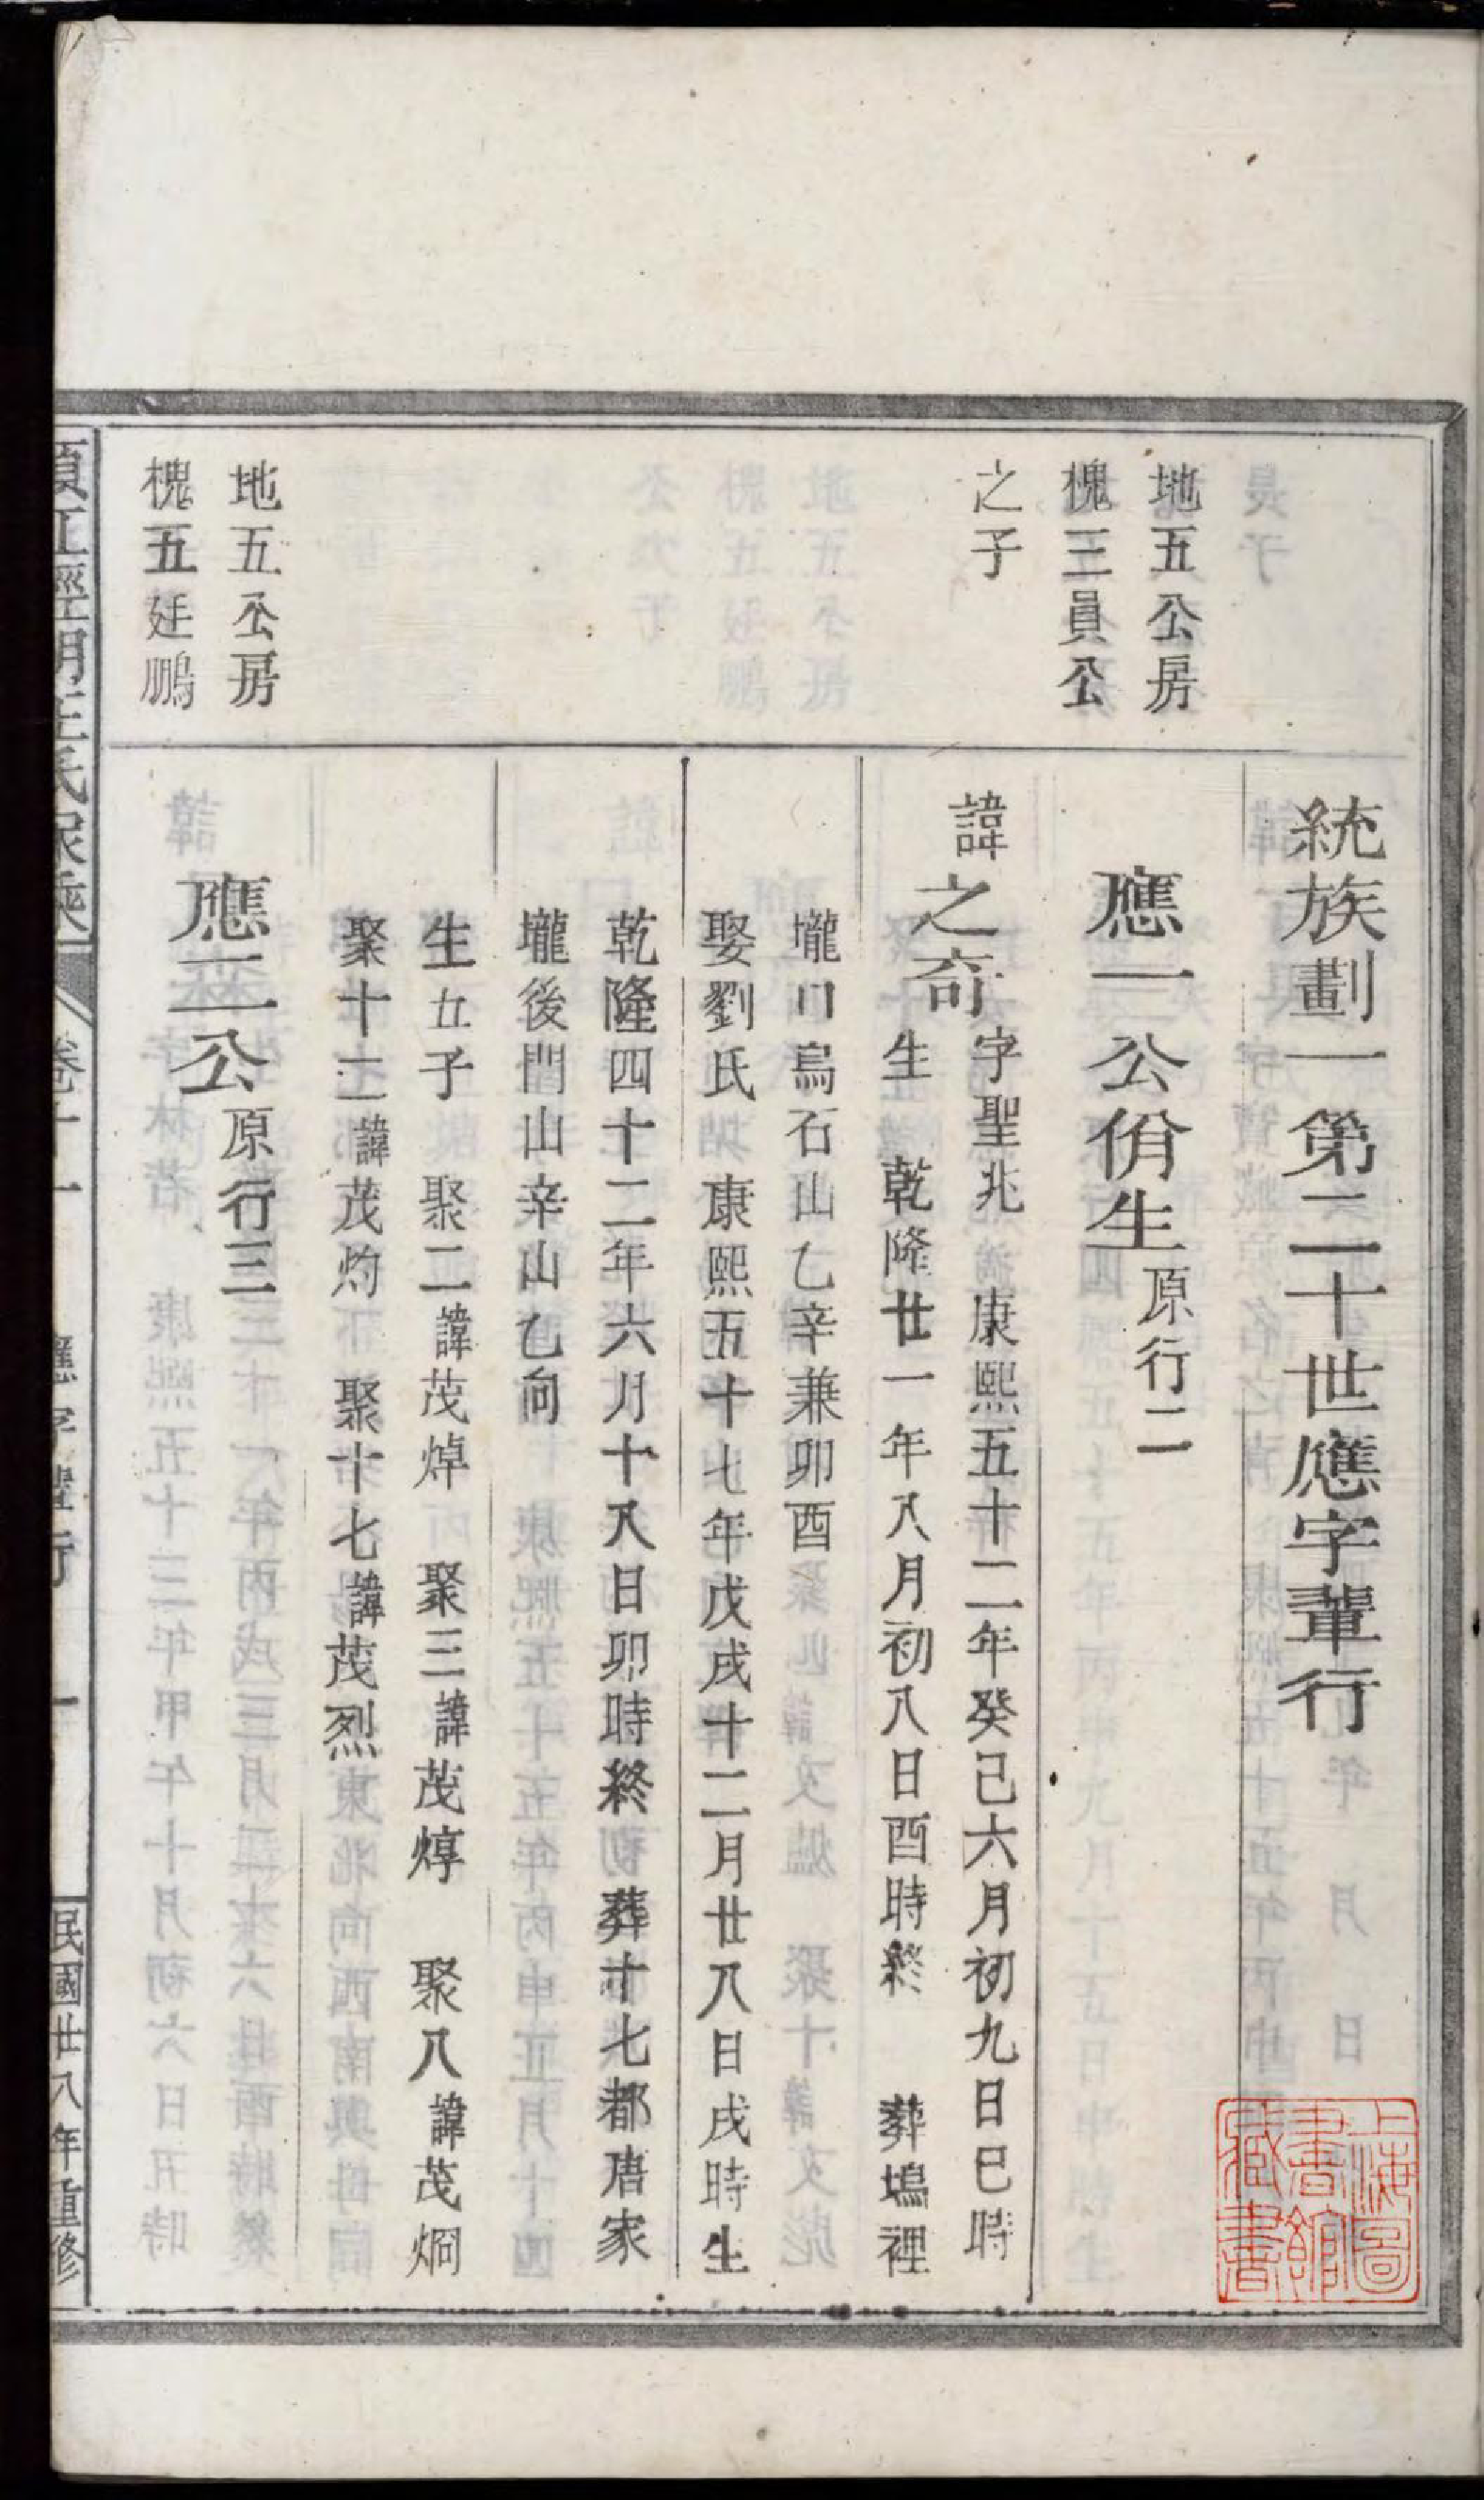 統族劃一第二十世應字輩行
地五公房
槐三員公
之子
應一公佾生原行二
諱之奇字聖兆 康熙五十二年癸己六月初九日巳時
生 乾隆廿一年八月初八日酉時終 葬塢裡
壠口烏石山乙辛兼卯酉
娶劉氏 康熙五十七年戊戌十二月廿八日戌時生
乾隆四十二年六月十八日卯時終 葬十七都唐家
壠後門山辛山乙向
生五子 聚二諱茂焯 聚三諱茂焞 聚八諱茂烱
聚十二諱茂灼 聚十七諱茂烈
地五公房
槐五廷鵬
應二公原行三
卷十一 應字輩行 一
民國廿八年重修
上海圖書館藏書